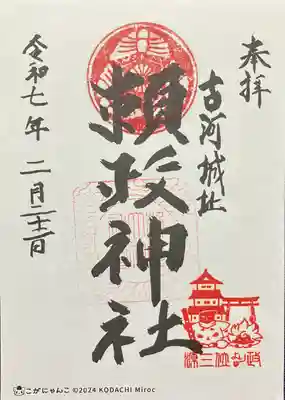 奉拝
古河城址
頼政神社
令和七年二月二十二日
源三位頼政
こがにゃんこ ©2024 KODACHI Miroc